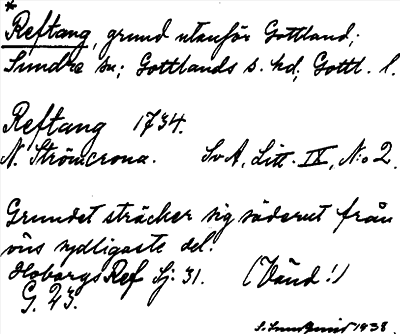 *
Reftang, grund utanför Gottland;
Sundre sn; Gottlands s. hd; Gottl. l.
Reftang 1734.
N. Strömcrona. SvA, Litt. IX, N:o 2.
Grundet sträcker sig söderut från
öns sydligaste del.
Hoborgs Ref Sj: 31. (Vänd!)
G. 23.
1938.